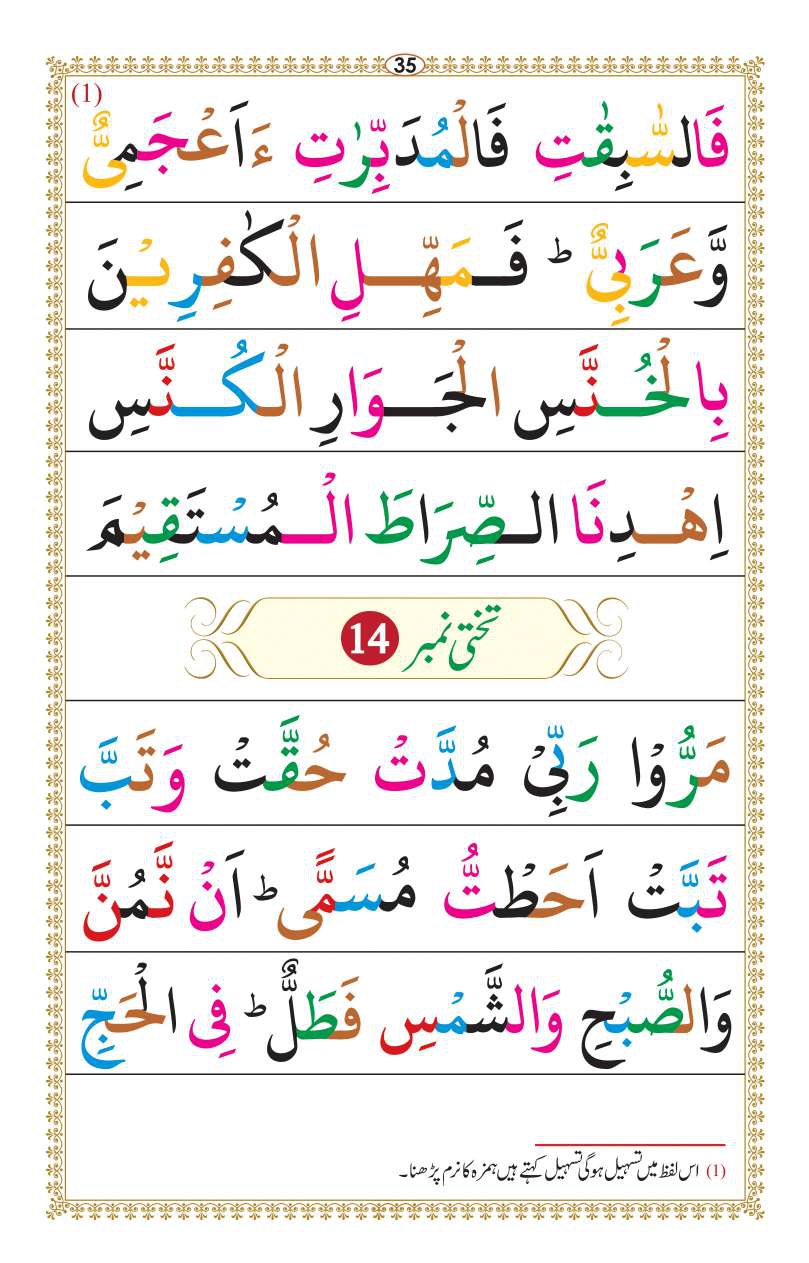 35
(1)
فَالسّٰبِقٰتِ فَالْمُدَبِّرٰتِ ءَاَعْجَمِىٌّ
وَّعَرَبِىٌّ ؕ فَمَهِّلِ الْكٰفِرِيْنَ
بِالْخُنَّسِ الْجَوَارِ الْكُنَّسِ
اِهْدِنَا الصِّرَاطَ الْمُسْتَقِيْمَ
تختی نمبر 14
مَرُّوْا رَبِّىْ مُدَّتْ حُقَّتْ وَتَبَّ
تَبَّتْ اَحَطْتُّ مُسَمًّى ؕ اَنْ نَّمُنَّ
وَالصُّبْحِ وَالشَّمْسِ فَطَلٌّ ؕ فِى الْحَجِّ
(1) اس لفظ میں تسہیل ہوگی تسہیل کہتے ہیں ہمزہ کا نرم پڑھنا۔